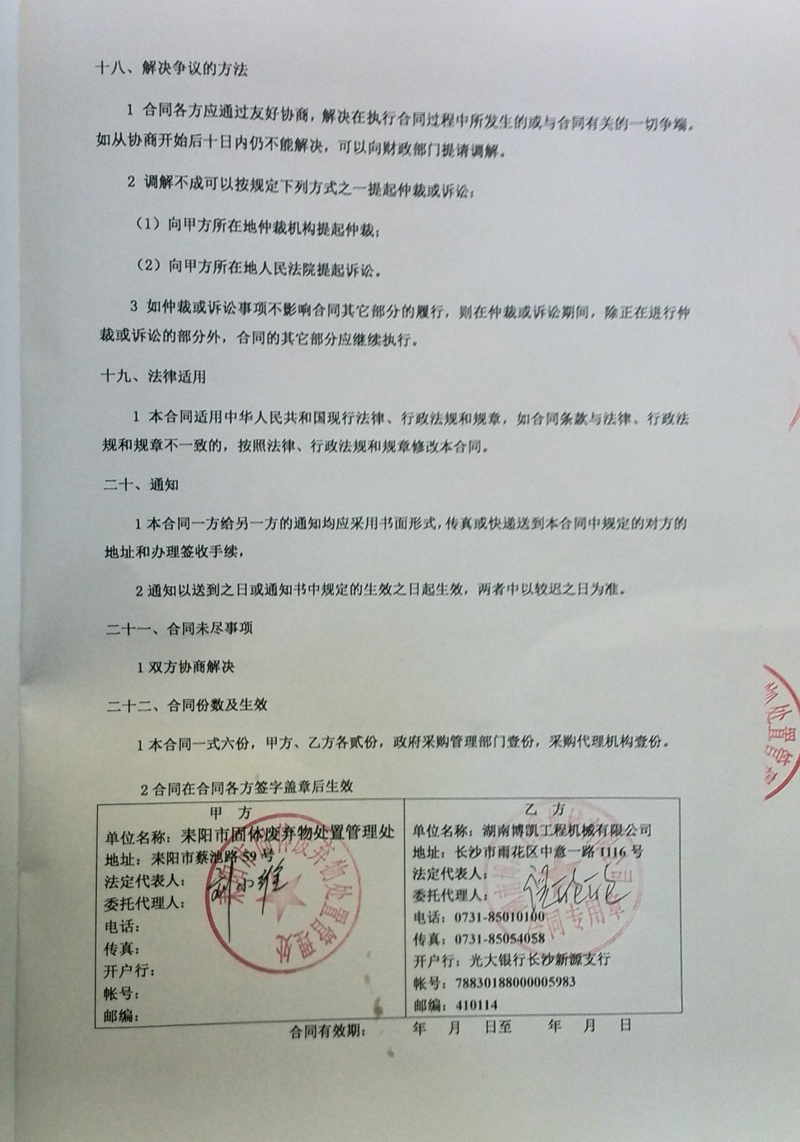 十八、解决争议的方法
1 合同各方应通过友好协商，解决在执行合同过程中所发生的或与合同有关的一切争端。
如从协商开始后十日内仍不能解决，可以向财政部门提请调解。
2 调解不成可以按规定下列方式之一提起仲裁或诉讼；
（1）向甲方所在地仲裁机构提起仲裁；
（2）向甲方所在地人民法院提起诉讼。
3 如仲裁或诉讼事项不影响合同其它部分的履行，则在仲裁或诉讼期间，除正在进行仲
裁或诉讼的部分外，合同的其它部分应继续执行。
十九、法律适用
1 本合同适用中华人民共和国现行法律、行政法规和规章，如合同条款与法律、行政法
规和规章不一致的，按照法律、行政法规和规章修改本合同。
二十、通知
1 本合同一方给另一方的通知均应采用书面形式，传真或快递送到本合同中规定的对方的
地址和办理签收手续，
2 通知以送到之日或通知书中规定的生效之日起生效，两者中以较迟之日为准。
二十一、合同未尽事项
1 双方协商解决
二十二、合同份数及生效
1 本合同一式六份，甲方、乙方各贰份，政府采购管理部门壹份，采购代理机构壹份。
2 合同在合同各方签字盖章后生效
甲 方
单位名称：耒阳市固体废弃物处置管理处
地址：耒阳市蔡池路 59 号
法定代表人：
委托代理人：
电话：
传真：
开户行：
帐号：
邮编：
耒阳市固体废弃物处置管理处
乙 方
单位名称：湖南博凯工程机械有限公司
地址：长沙市雨花区中意一路 1116 号
法定代表人：
委托代理人：
电话：0731-85010100
传真：0731-85054058
开户行：光大银行长沙新源支行
帐号：78830188000005983
邮编：410114
合同专用章
物处置管
合同有效期： 年 月 日至 年 月 日